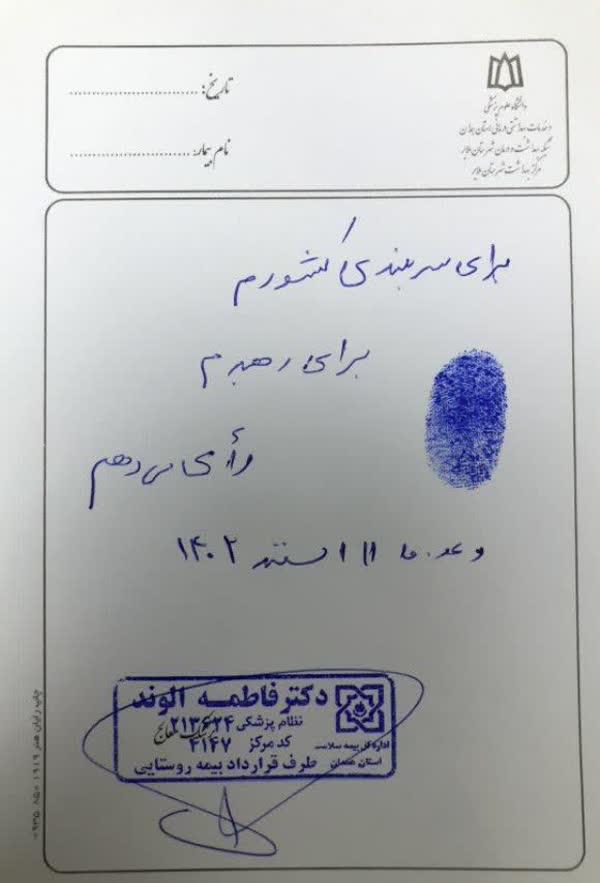 دانشگاه علوم پزشکی
و خدمات بهداشتی درمانی استان همدان
شبکه بهداشت و درمان شهرستان ملایر
مرکز بهداشت شهرستان ملایر
تاریخ: ..............................
نام بیمار: ..............................
برای سربلندی کشورم
برای رهبرم
رأی می دهم
وعده ما ۱۱ اسفند ۱۴۰۲
دکتر فاطمه الوند
نظام پزشکی ۲۱۳۶۲۴
پزشک معالج
کد مرکز ۴۱۴۷
طرف قرارداد بیمه روستایی
اداره کل بیمه سلامت
استان همدان
چاپ رایان هنر ۱۹۱۹ ۸۵۰ ۰۹۳۵